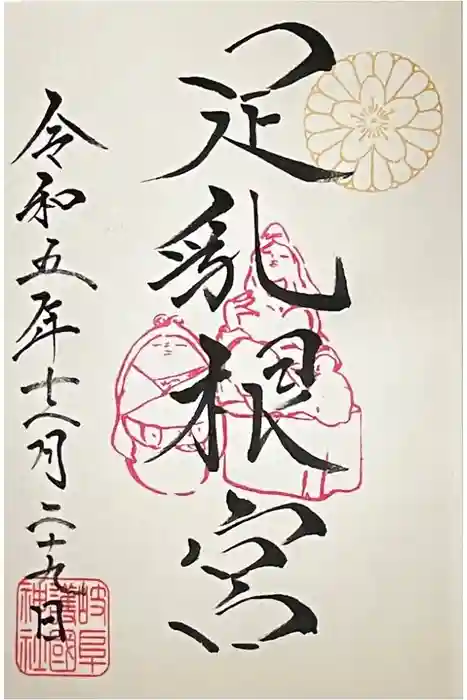 足乳根宮
令和五年十二月二十九日
岐阜
護國
神社